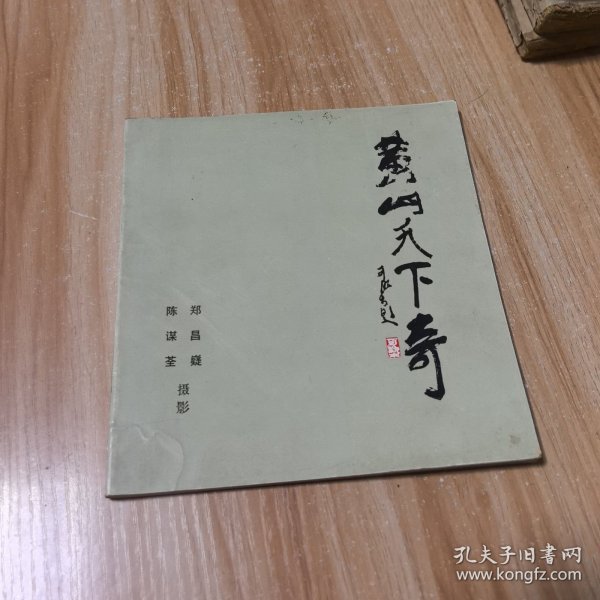 黄山天下奇
郑昌嶷
陈谋荃
摄影
孔夫子旧书网
www.kongfz.com